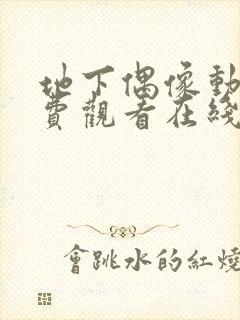 地下偶像動
費觀看在綫
會跳水的紅燒